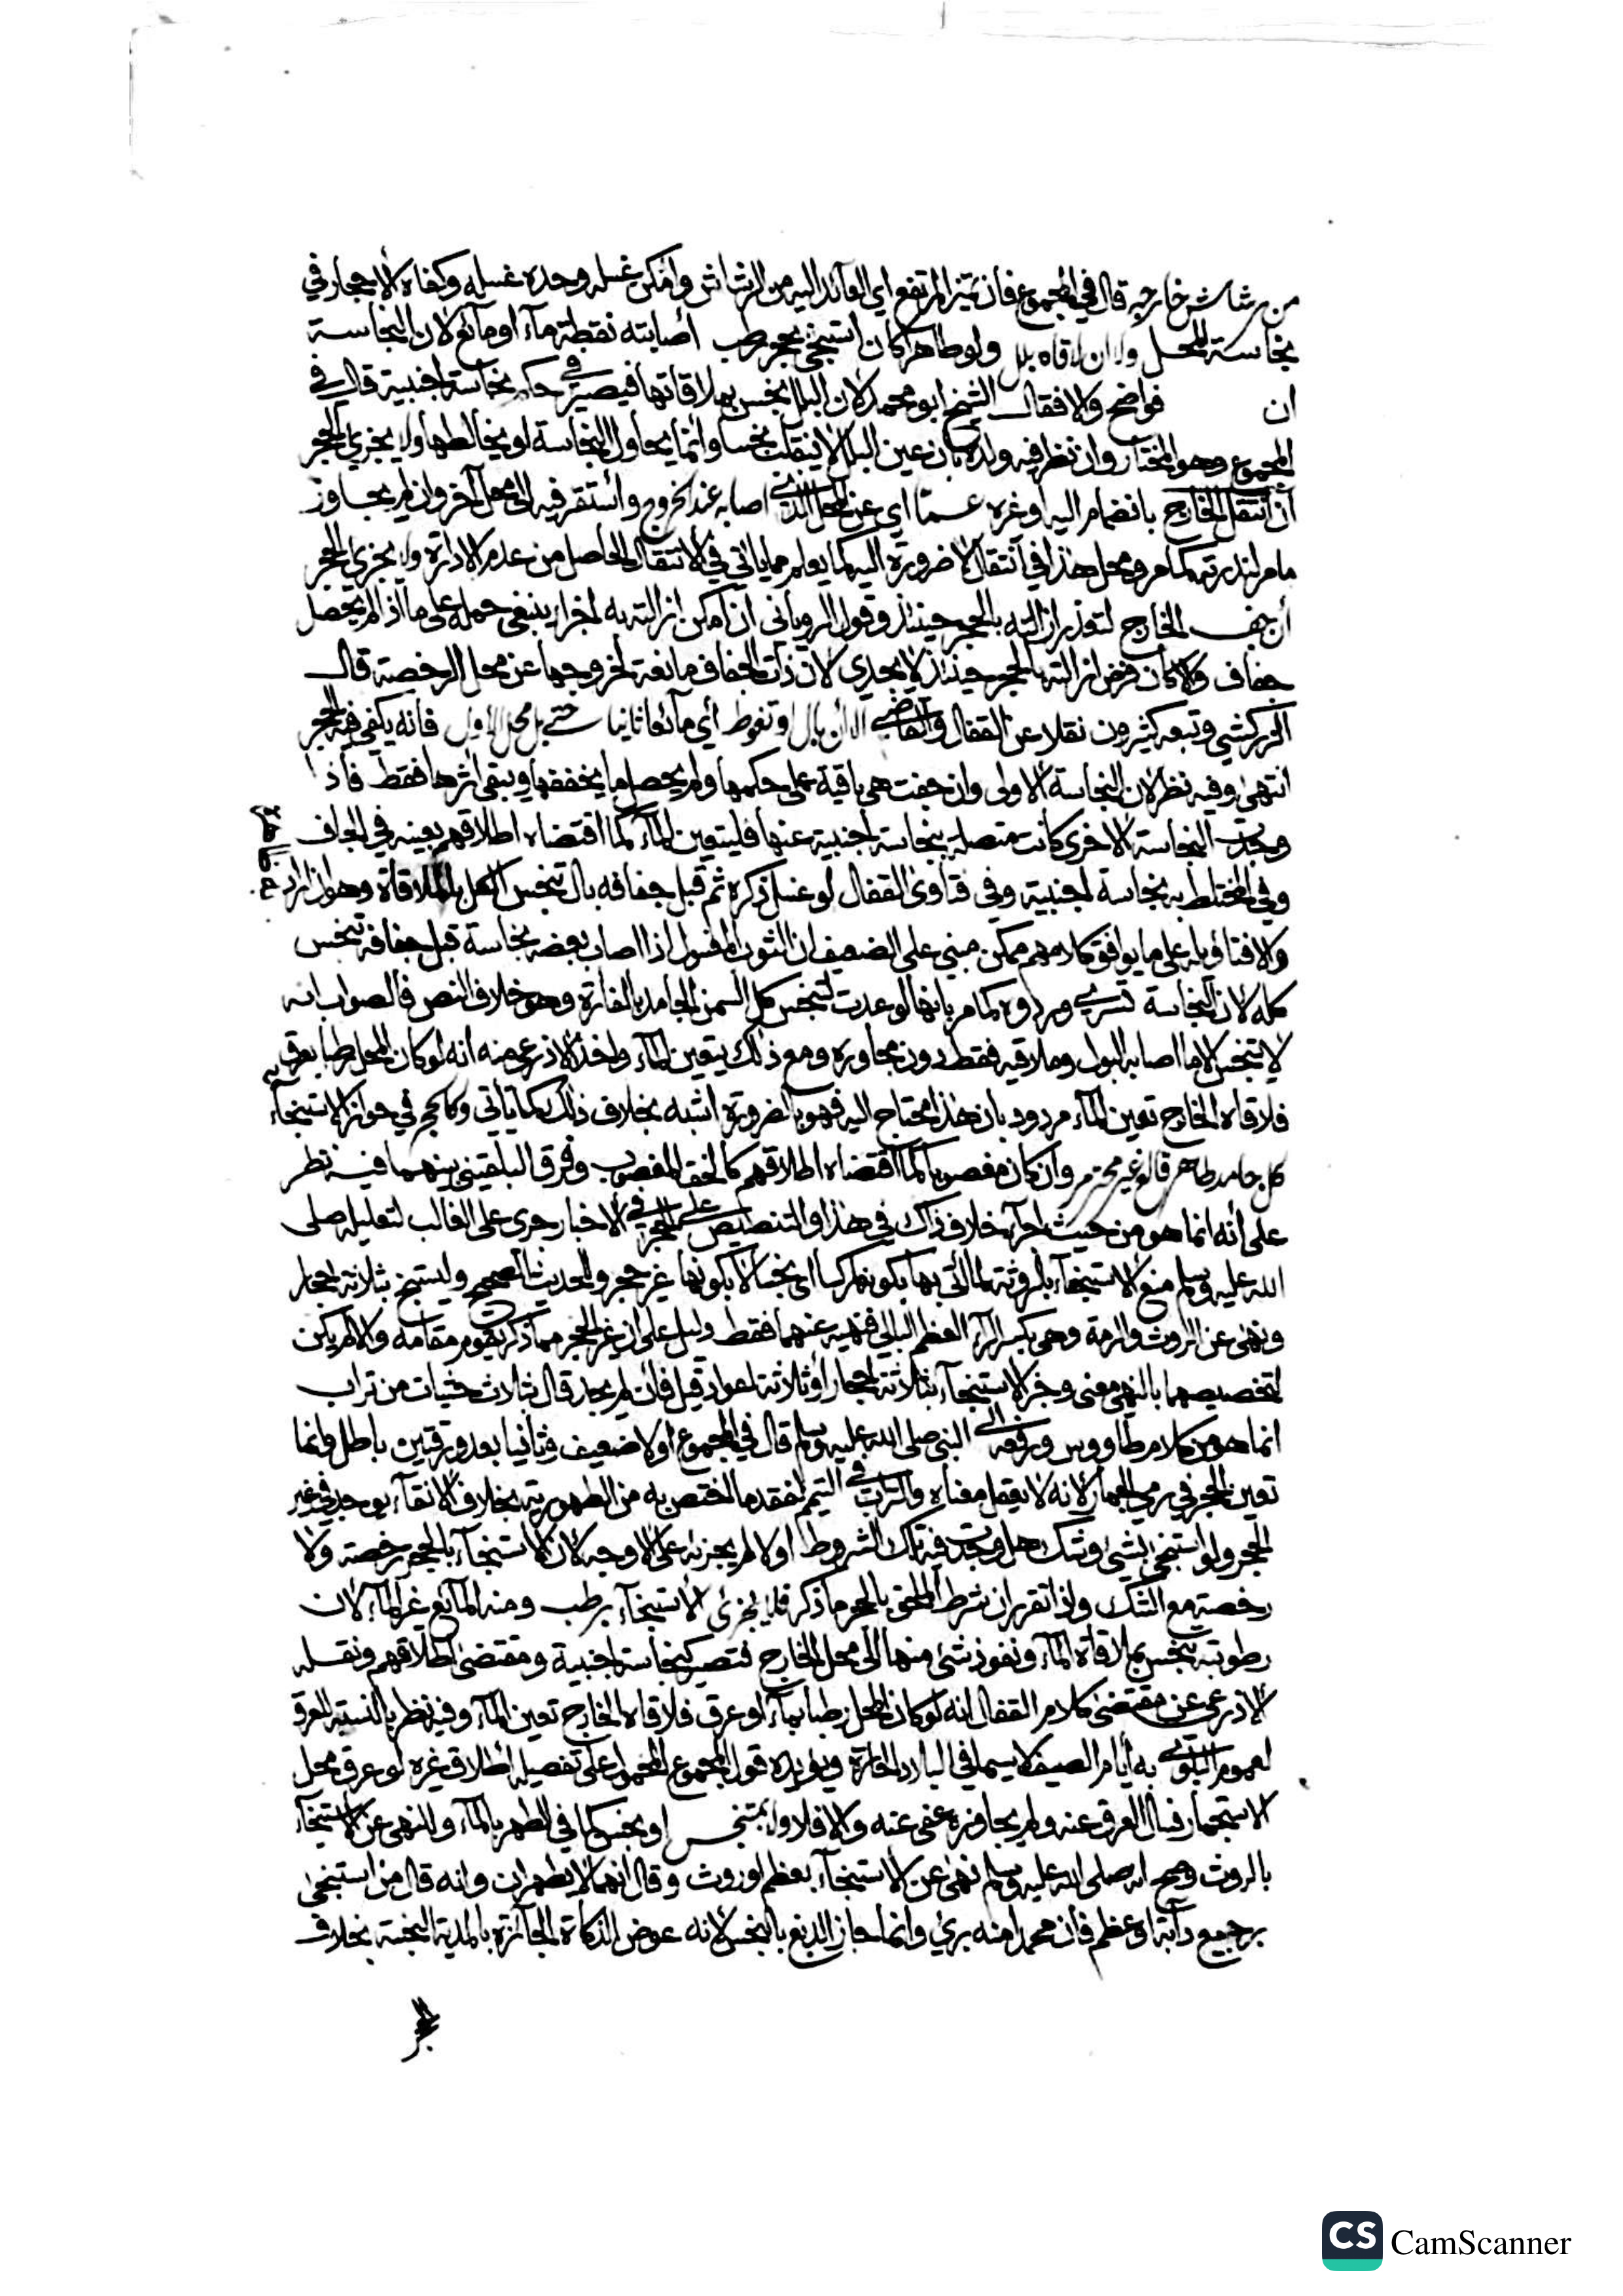 من رشاش خارجه قال في المجموع فان تميز المرتفع اي العائد اليه من الرشاش وأمكن غسله وحده غسله وكفاه الاحجار في
نجاسة المحل ولا ان لاقاه بلل ولو طاهرا كان استنجى بحجر رطب أصابته نقطة مآء او مائع لان النجاسة
ان فواضح والا فقال الشيخ ابو محمد لان البلل ينجس بملاقاتها فيصير في حكم نجاسة اجنبية قال في
المجموع وهو المختار وان نظر فيه ولده بان عين البلل لا ينقلب نجسا وانما يجاور النجاسة او يخالطها ولا يجزي الحجر
ان انتقل الخارج بانضمام اليه او غره عما اي عن المحل الذي اصابه عند الخروج واستقر فيه الى محل آخر وان لم يجاوز
ما مر لندرته كما مر ومحل هذا في انتقال لا ضرورة اليه كما يعلم مما ياتي في الانتقال الحاصل من عدم الادارة ولا يجزي الحجر
أن جف الخارج لتعذر ازالته بالحجر حينئذ وقول الروياني ان امكن ازالته به اجزا ينبغي حمله على ما اذا لم يحصل
جفاف والا كان فرض ازالته بالحجر حينئذ لا يجدي لان ذات الجفاف مانعة لخروجها عن محل الرخصة قال
الزركشي وتبعه كثيرون نقلا عن القفال والقاضي الا ان بال او تغوط أي مائعا ثانيا حتى بل محل الاول فانه يكفي فيه الحجر
انتهى وفيه نظر لان النجاسة الاولى وان جفت هي باقية على حكمها ولم يحصل ما يخففها ويبقى اثرها فقط فاذا
وجدت النجاسة الاخرى كانت متصلة بنجاسة اجنبية عنها فليتعين المآء كما اقتضاه اطلاقهم بعينه في الجاف
وفي المختلط به نجاسة اجنبية وفي فتاوى القفال لو غسل ذكره ثم قبل جفافه بال تنجس الكل بالملاقاة وهو ان اراد
والا فتاويله على ما يوافق كلامهم ممكن مبني على الضعيف ان الثوب المغسول اذا اصاب بعضه نجاسة قبل جفافه تنجس
كله لان النجاسة تسري وردوه كما مر بانها لو عدت لتنجس كل السمن الجامد بالفارة وهو خلاف النص فالصواب انه
لا يتنجس الا ما اصابه البول وملاقيه فقط دون مجاوره ومع ذلك يتعين المآء واخذ الاذرعي منه أنه لو كان المحل رطبا بعرق
فلاقاه الخارج تعين المآء مردود بان هذا محتاج اليه فهو بالضرورة اشبه بخلاف ذلك كما ياتي وكالحجر في جواز الاستنجآء
كل جامد طاهر قالع غير محترم وان كان مغصوبا كما اقتضاه اطلاقهم كالخف المغصوب وفرق البلقيني بينهما فيه نظر
على أنه انما هو من حيث اجزآء خلاف ذلك في هذا والتنصيص على الحجر في الاخبار جرى على الغالب لتعليله صلى
الله عليه وسلم منع الاستنجآء بالروثة لما اتي بها بكونها ركسا اي نجسا لا بكونها غير حجر وللحديث الصحيح وليستنج بثلاثة احجار
ونهى عن الروث والرمة وهي بكسر الرآء العظم البالي فنهيه عنهما فقط دليل على ان غير الحجر مما ذكر يقوم مقامه والا لم يكن
لتخصيصهما بالنهي معنى وخبر الاستنجآء بثلاثة احجار أو ثلاثة اعواد قيل فان لم يجد قال ثلاث حثيات من تراب
انما هو من كلام طاووس ورفعه الى النبي صلى الله عليه وسلم قال في المجموع اولا ضعيف وثانيا بعد ورقتين باطل وانما
تعين الحجر في رمي الجمار لانه لا يعقل معناه والتراب في التيمم لفقد ما اختص به من الطهورية بخلاف الانقآء يوجد في غير
الحجر ولو استنجى بشئ وشك هل وجدت فيه تلك الشروط اولا لم يجزئه على الاوجه لان الاستنجآء بالحجر رخصة ولا
رخصة مع الشك واذا تقرر ان شرط الملحق بالحجر ما ذكر فلا يجزئ الاستنجآء برطب ومنه المائع غير المآء لان
رطوبته تنجس بملاقاة المآء ونفوذ شئ منها الى محل الخارج فتصير كنجاسة اجنبية ومقتضى اطلاقهم ونقله
الاذرعي عن مقتضى كلام القفال انه لو كان المحل رطبا بمآء او عرق فلاقاه الخارج تعين المآء وفيه نظر بالنسبة للعرق
لعموم البلوى به أيام الصيف لا سيما في البلاد الحارة ويؤيده قول المجموع المحمول على تفصيله اطلاق غيره لو عرق محل
الاستجمار فسال العرق عنه ولم يجاوزه عفي عنه والا فلا ولا بمتنجس او نجس كما في الطهر بالمآء وللنهي عن الاستنجآء
بالروث وصح انه صلى الله عليه وسلم نهى عن الاستنجآء بعظم او روث وقال انهما لا يطهران وانه قال من استنجى
برجيع دآبة او عظم فان محمدا منه بري وانما جاز الدبغ بالنجس لانه عوض الذكاة الجائزة بالمدية النجسة بخلاف